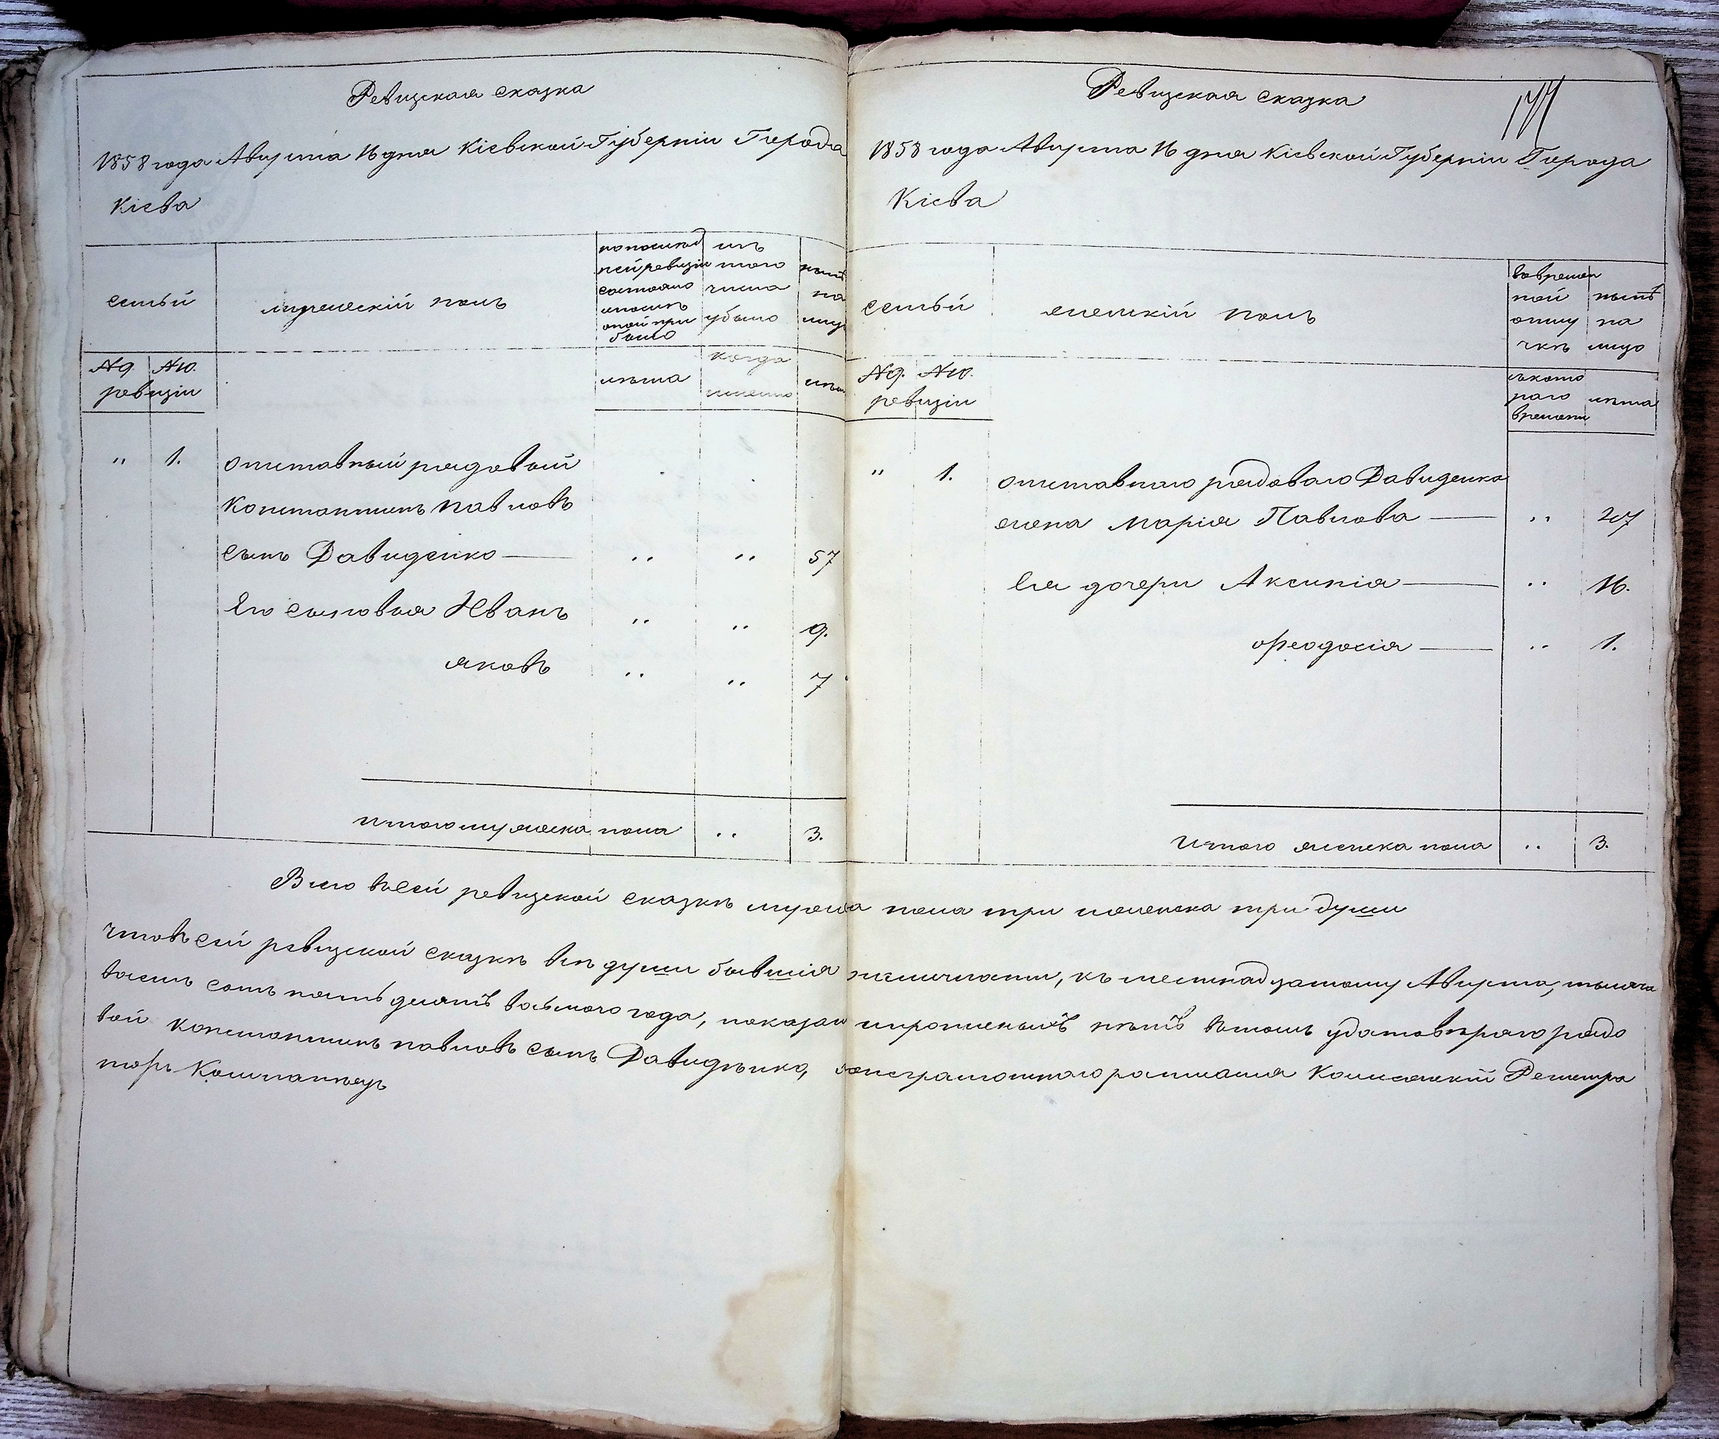 Ревизская сказка
1858 года Августа 16 дня Кіевской Губерніи Города
Кіева
семьи
мужескій полъ
по послѣд
ней ревизіи
состояло
и послѣ
оной при
было
изъ
того
числа
убыло
нынѣ
на
лицо
№9. №10.
ревизіи
лѣта
когда
именно
лѣта
„ 1. отставный рядовый
Константинъ Павловъ
сынъ Давиденко — „ „ 57
Его сыновья Иванъ „ „ 9.
Яковъ „ „ 7
итого мужеска пола „ 3.
Ревизская сказка
1858 года Августа 16 дня Кіевской Губерніи Города
Кіева
семьи
женскій полъ
во времен
ной
отлу
чкѣ
нынѣ
на
лицо
№9. №10.
ревизіи
съ кото
раго
времени
лѣта
„ 1. отставнаго рядоваго Давиденка
жена Марія Павлова — „ 27
Ея дочери Аксинія — „ 16.
Ѳеодосія — „ 1.
Итого женска пола „ 3.
Всего въ сей ревизской сказкѣ мужска пола три и женска три души
что въ сей ревизской сказкѣ всѣ души бывшія въ наличности, къ шестнадцатому Августа, тысяча
восемь сотъ пятьдесятъ восьмого года, показан и пропис нѣтъ въ томъ удостовѣряю рядо
вой Константинъ Павловъ сынъ Давидѣнко, а вместо неграмотнаго росписался Колежскій Регистра
торъ